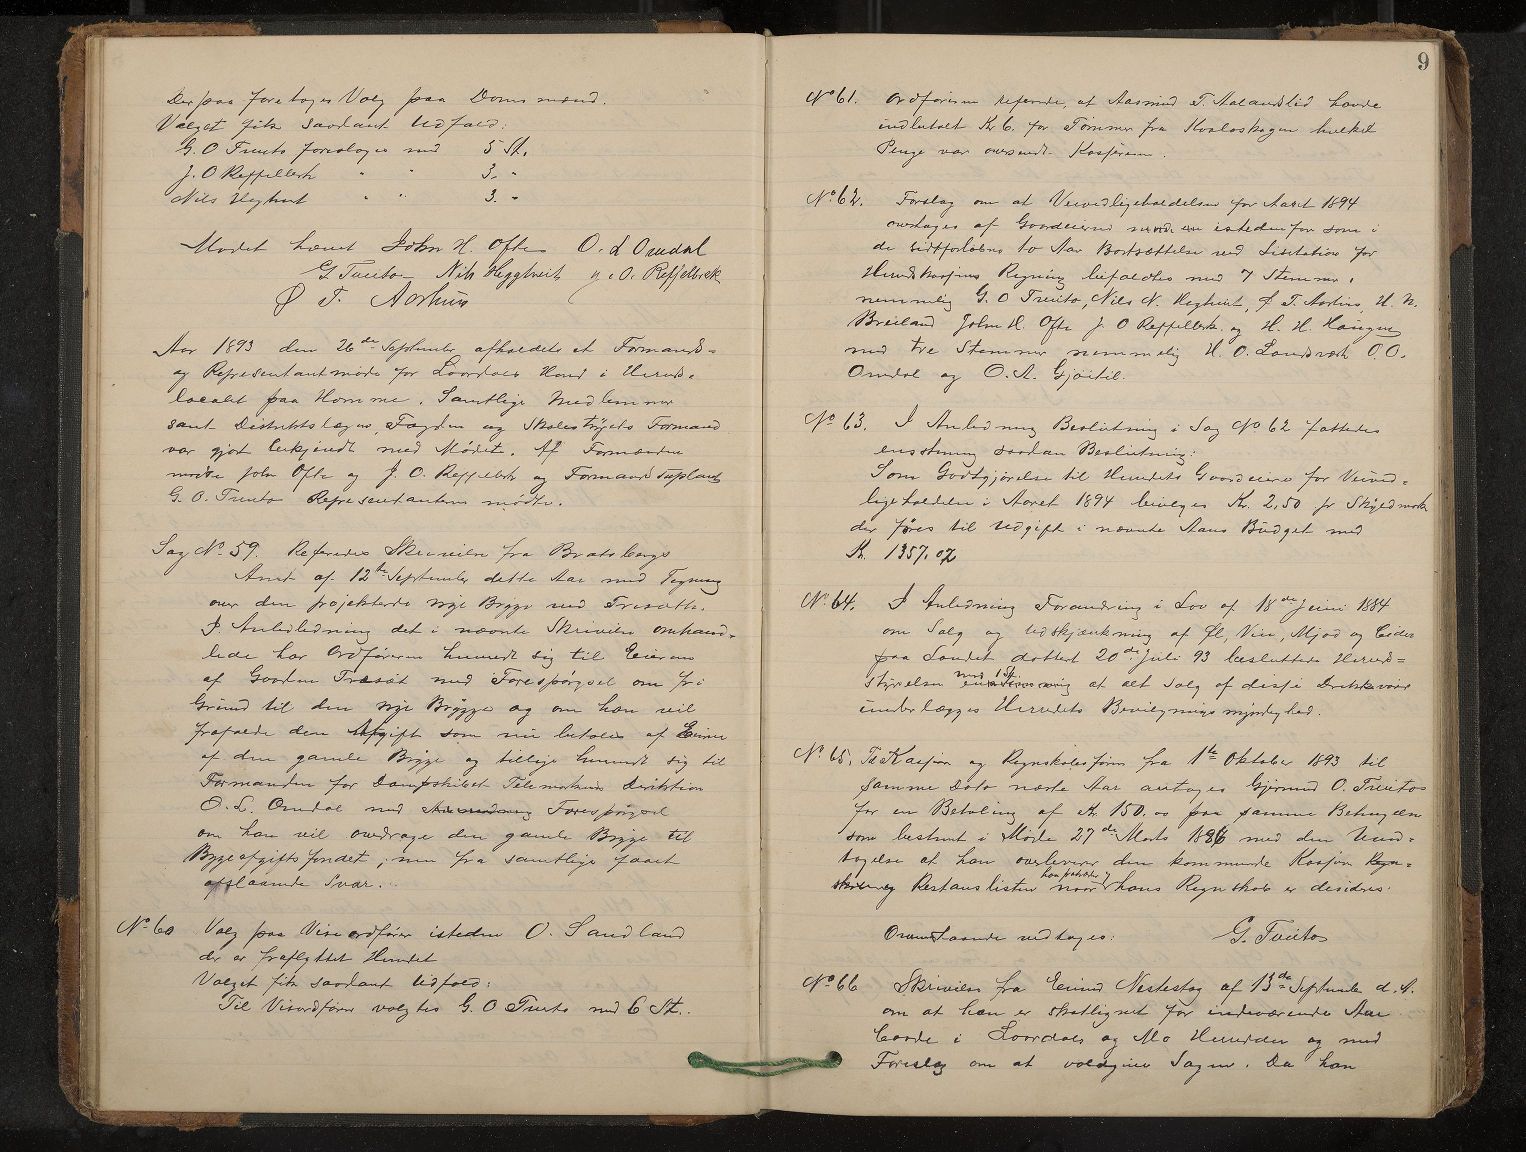 Derpaa foretoges Valg paa Domsmænd.
Valget fik saadant Udfald:
G. O Tveito foreslages med 5 St.
J. O Reffelbek " " 3. "
Nils Heghuit " " 3. "
Mødet hævet John H. Ofte O. L Omdal
G Tveito Nils Hegghveit J. O. Reffelbek
Ø T. Aarhus
Aar 1893 den 26de September afholdets et Formands=
og Representantmøde for Laardals Herred i Herreds=
localet paa Homme. Samtlige Medlemmer
samt Distriktslægen, Fogden og Skolestyrets Formand
var gjort bekjendt med Mødet. Af Formændene
mødte John Ofte og J. O. Reffelbek og Formandssupleant
G. O. Tveito Representanterne mødte.
Sag No 59. Refereredes Skrivelse fra Bratsbergs
Amt af 12te September dette Aar med Tegning
over den projekterte nye Brygge ved Tresæt.
I Anledledning det i nævnte Skrivelse omhand=
lede har Ordføreren henvendt sig til Eieren
af Gaarden Tresæt med Forespørgsel om fri
Grund til den nye Brygge og om han vil
frafalde den Afgift som nu betales af Eierne
af den gamle Brygge og tillige henvendt sig til
Formanden for Dampskibet Telemarkens Direktion
O. L. Omdal med Forespørgsel
om han vil overdrage den gamle Brygge til
Bryggeafgiftsfondet; men fra samtlige faaet
afslaaende Svar.
No 60 Valg paa Viseordfører isteden O. Sandland
der er fraflyttet Herredet
Valget fik saadant Udfald:
Til Viseordfører valgtes G. O Tveito med 6 St.
9
No 61. Ordføreren refererede, at Aasmund T. Aalandslid havde
indbetalt Kr 6. for Tømmer fra Kvaloskogen hvilket
Penge var oversendt Kasseren.
No 62. Forslag om at Veivedligeholdelsen for Aaret 1894
overtages af Gaardeierne istedenfor som i
de sidstforløbne to Aar Bortsettelse ved Lisitation for
Herredskassens Regning besluttes med 7 Stemmer,
nemmelig G. O Tveito, Nils N. Heghveit, Ø T. Aarhus, H. N.
Breiland John H. Ofte J. O Reffelbek og H. H. Haugen
med tre Stemmer nemmelig H. O. Landsverk O. O.
Omdal og O. A. Gjøitil.
No 63. I Anledning Beslutning i Sag No 62 fattedes
eenstemig saadan Beslutning:
Som Godtgjørelse til Herredets Gaardeiere for Veived=
ligeholdelse i Aaret 1894 beviges Kr. 2,50 pr Skyldmark
der føres til Udgift i nævnte Aars Budget med
Kr. 1357.07
No 64. I Anledning Forandring i Lov af 18de Juni 1884
om Salg og Udskjænkning af Øl, Vin, Mjød og Cider
paa Landet dattert 20de Juli 93 besluttede Herreds=
styrelsen med 1 St. eenstemmig at alt Salg af disse Drikkevarer
underlægges Herredets Bevilgningsmyndighed.
No 65. Til Kasser og Regnskabsfører fra 1te Oktober 1893 til
samme Dato næste Aar antages Gjermund O. Tveito
for en Betaling af Kr 150.00 paa samme Betingelser
som bestemt i Møde 27de Marts 1886 med den Und=
tagelse at han overleverer den kommende Kasser Regn=
skabet og Restanslisten naar hans Regnskab er desideres.
Ovenstaaende vedtages: G. Tveito
No 66 Skrivelse fra Eivind Nestestog af 13de September d. A.
om at han er skatlignet for indeværende Aar
baade i Laardals og Mo Herreder og med
Forslag om at voldgive Sagen. Da han